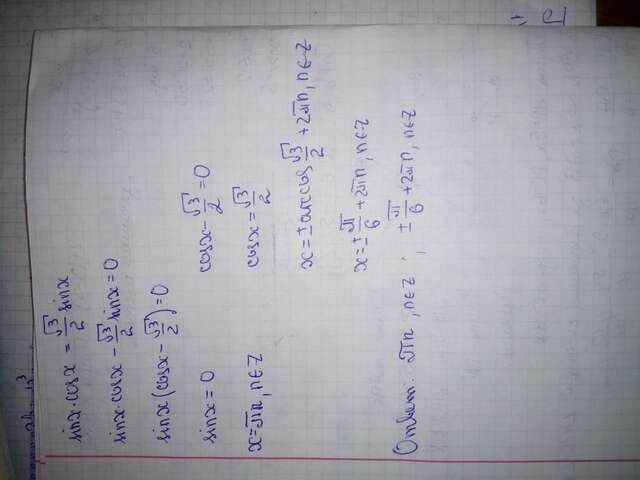 sinx · cosx = √3/2 sinx
sinx · cosx − √3/2 sinx = 0
sinx (cosx − √3/2) = 0
sinx = 0
cosx − √3/2 = 0
x = πn, n∈Z
cosx = √3/2
x = ± arccos √3/2 + 2πn, n∈Z
x = ± π/6 + 2πn, n∈Z
Ответ: πn, n∈Z; ± π/6 + 2πn, n∈Z